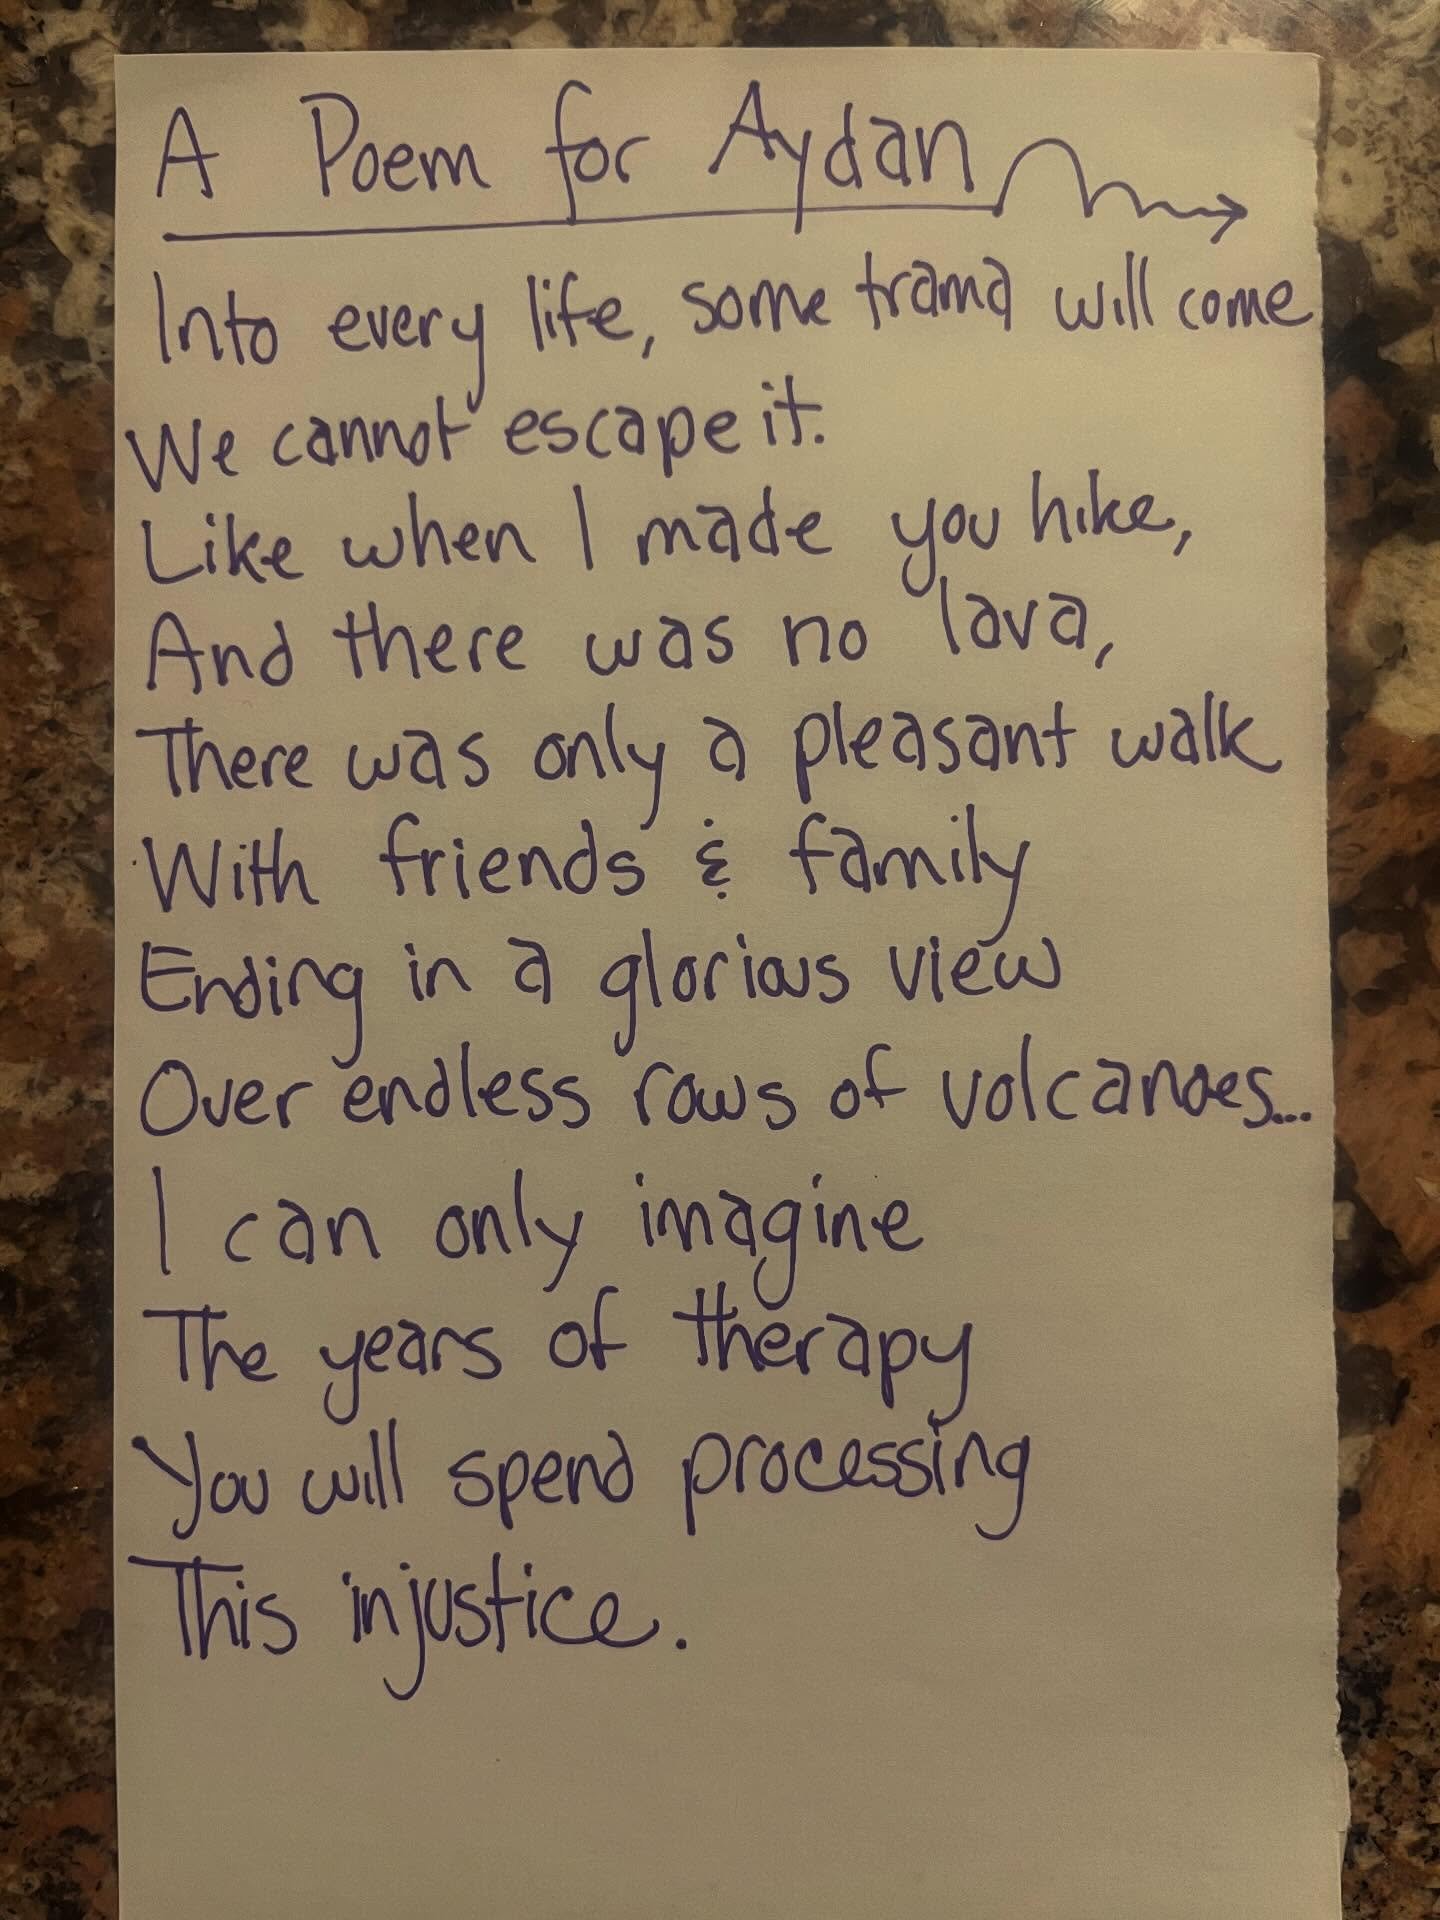 A Poem for Aydan
Into every life, some trama will come
We cannot escape it.
Like when I made you hike,
And there was no lava,
There was only a pleasant walk
With friends & family
Ending in a glorious view
Over endless rows of volcanoes...
I can only imagine
The years of therapy
You will spend processing
This injustice.